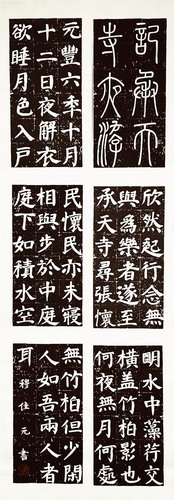 記承天
寺夜游
元豐六年十月
十二日夜解衣
欲睡月色入戶
欣然起行念無
與為樂者遂至
承天寺尋張懷
民懷民亦未寢
相與步於中庭
庭下如積水空
明水中藻荇交
橫蓋竹柏影也
何夜無月何處
無竹柏但少閑
人如吾兩人者
耳
元書